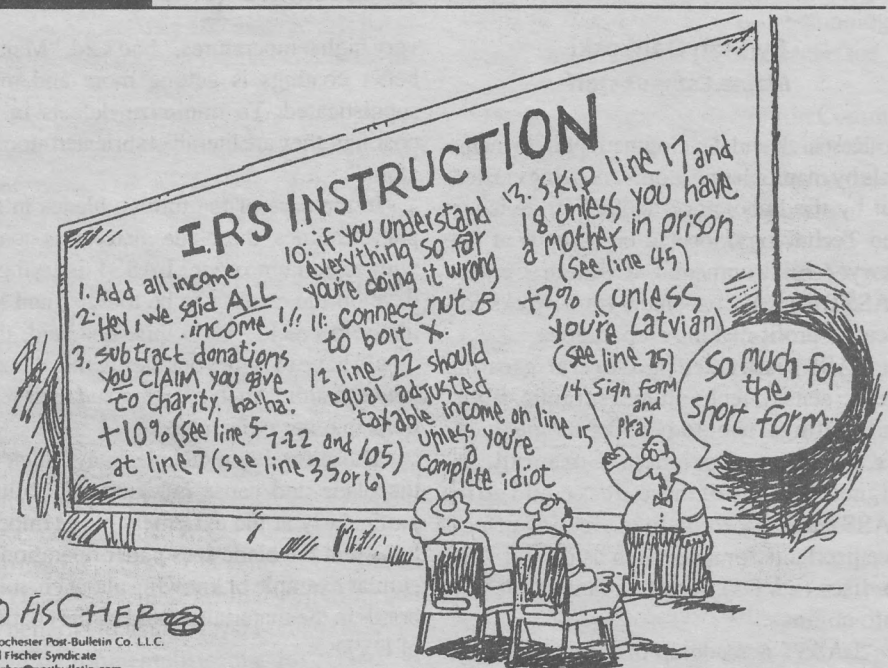 I.R.S INSTRUCTION
1. Add all income
2. Hey, we said ALL
income!!!
3. subtract donations
you CLAIM you gave
to charity. ha!ha!
+10% (see line 5-
7-22 and 105)
at line 7 (see line 35
10. if you understand
everything so far
you're doing it wrong
11. connect nut B
to bolt X.
12 line 22 should
equal adjusted
taxable income on line 15
unless you're
a
complete idiot
13. SKIP line 17 and
18 unless you have
a mother in prison
(see line 45)
+3% (unless
you're Latvian)
(see line 25)
14 Sign form
and
Pray
So much for
the
short form...
D FISCHER
ochester Post-Bulletin Co. L.L.C.
l Fischer Syndicate